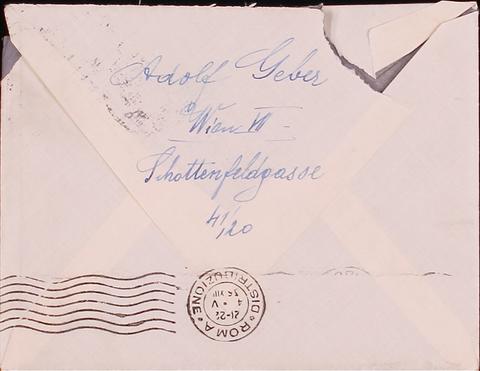 Adolf Geber
Wien VII
Schottenfeldgasse
41/20
ROMA
DISTRIBUZIONE
21-22
4 • V